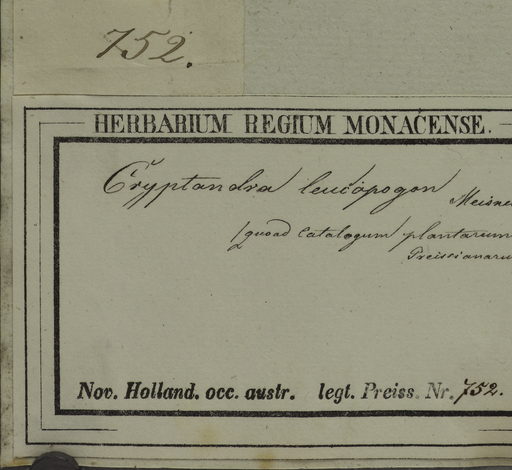 752.
HERBARIUM REGIUM MONACENSE.
Cryptandra leucopogon Meisne
quoad catalogum plantarum
Preissianaru
Nov. Holland. occ. austr. legt. Preiss. Nr. 752.